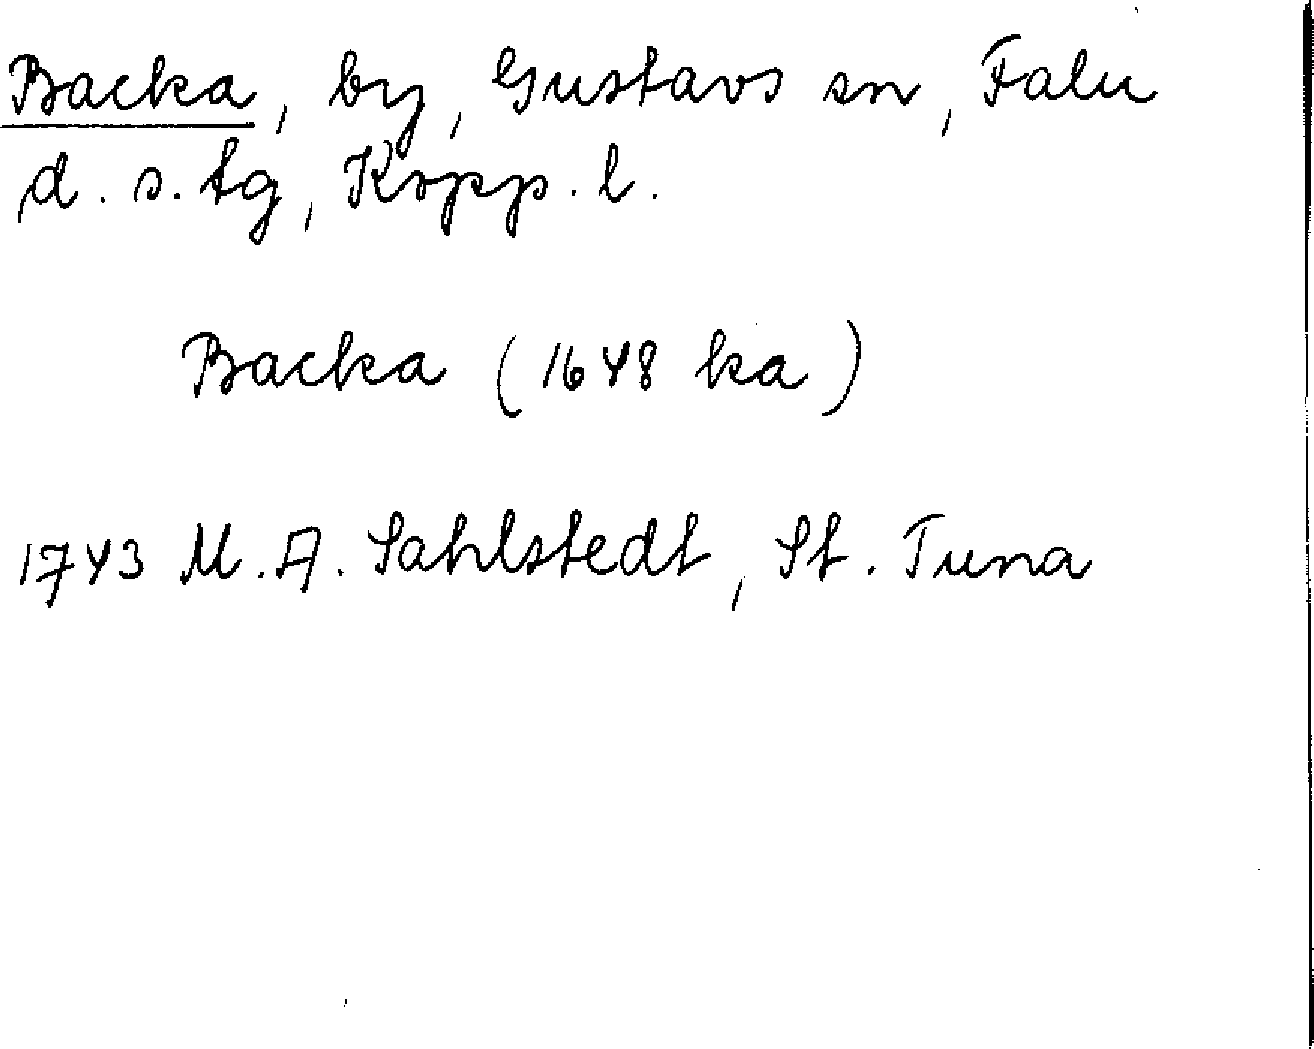 Backa, by, Gustavs sn, Falu
d. s. tg, Kopp. l.
Backa (1648 ka)
1743 M. A. Sahlstedt, St. Tuna